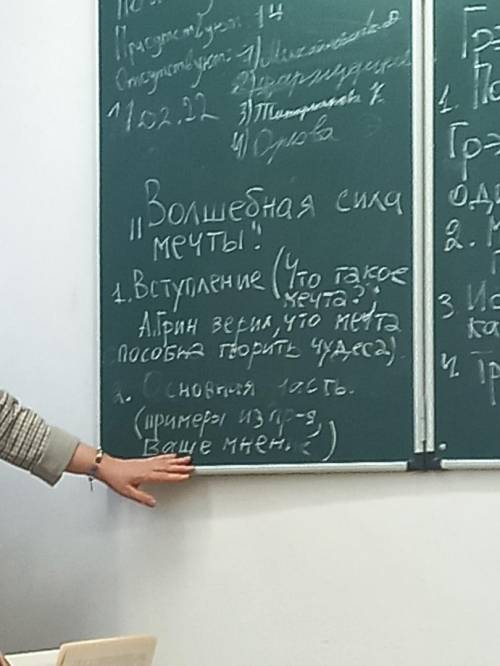 Присутствуют 14
Отсутствуют: 1)
2)
11.02.22 3)
4) Орлова
"Волшебная сила
мечты".
1. Вступление (Что такое
мечта?,
А.Грин верил, что мечта
способна творить чудеса)
2. Основная часть.
(примеры из пр-я,
Ваше мнение)
Гр
1. По
Гр-
оди
2.
3 Ис
ка
4. Тр